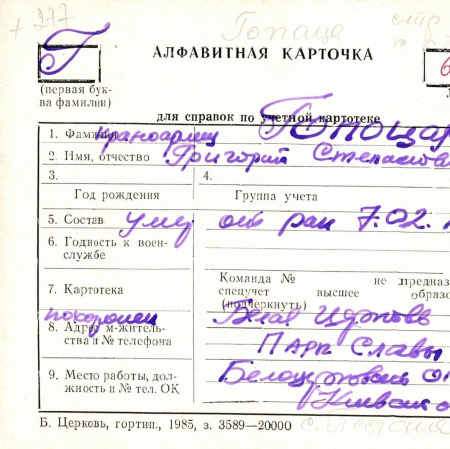 + 277 Гопаца стр
Г АЛФАВИТНАЯ КАРТОЧКА 6
(первая бук-
ва фамилии)
для справок по учетной картотеке
1. Фамилия красноармеец Гопоцар
2. Имя, отчество Григорий Степанови
3. 4.
Год рождения Группа учета
5. Состав умер от ран 7.02.
6. Годность к воен-
службе
Команда № не предназ
7. Картотека спецучет высшее образо
(подчеркнуть)
похоронен Белая Церковь
8. Адрес м-житель-
ства и № телефона Парк Славы
9. Место работы, дол-
жность и № тел. ОК Белоцерковский
Киевско
Б. Церковь, гортип., 1985, з. 3589—20000